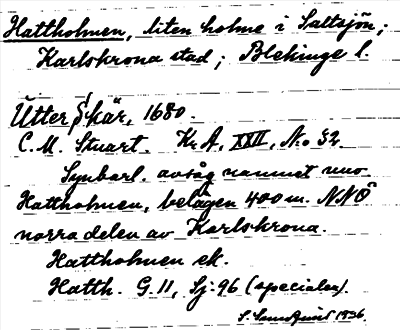 Hattholmen, liten holme i Saltsjön;
Karlskrona stad; Blekinge l.
Utter Skär, 1680.
C. M. Stuart. Kr. A. XXII, No 32.
Synbarl. avsåg namnet nuv.
Hattholmen, belägen 400 m. NNÖ
norra delen av Karlskrona.
Hattholmen ek.
Hatth. G. 11, Sj. 96 (specialen).
S. 1936.